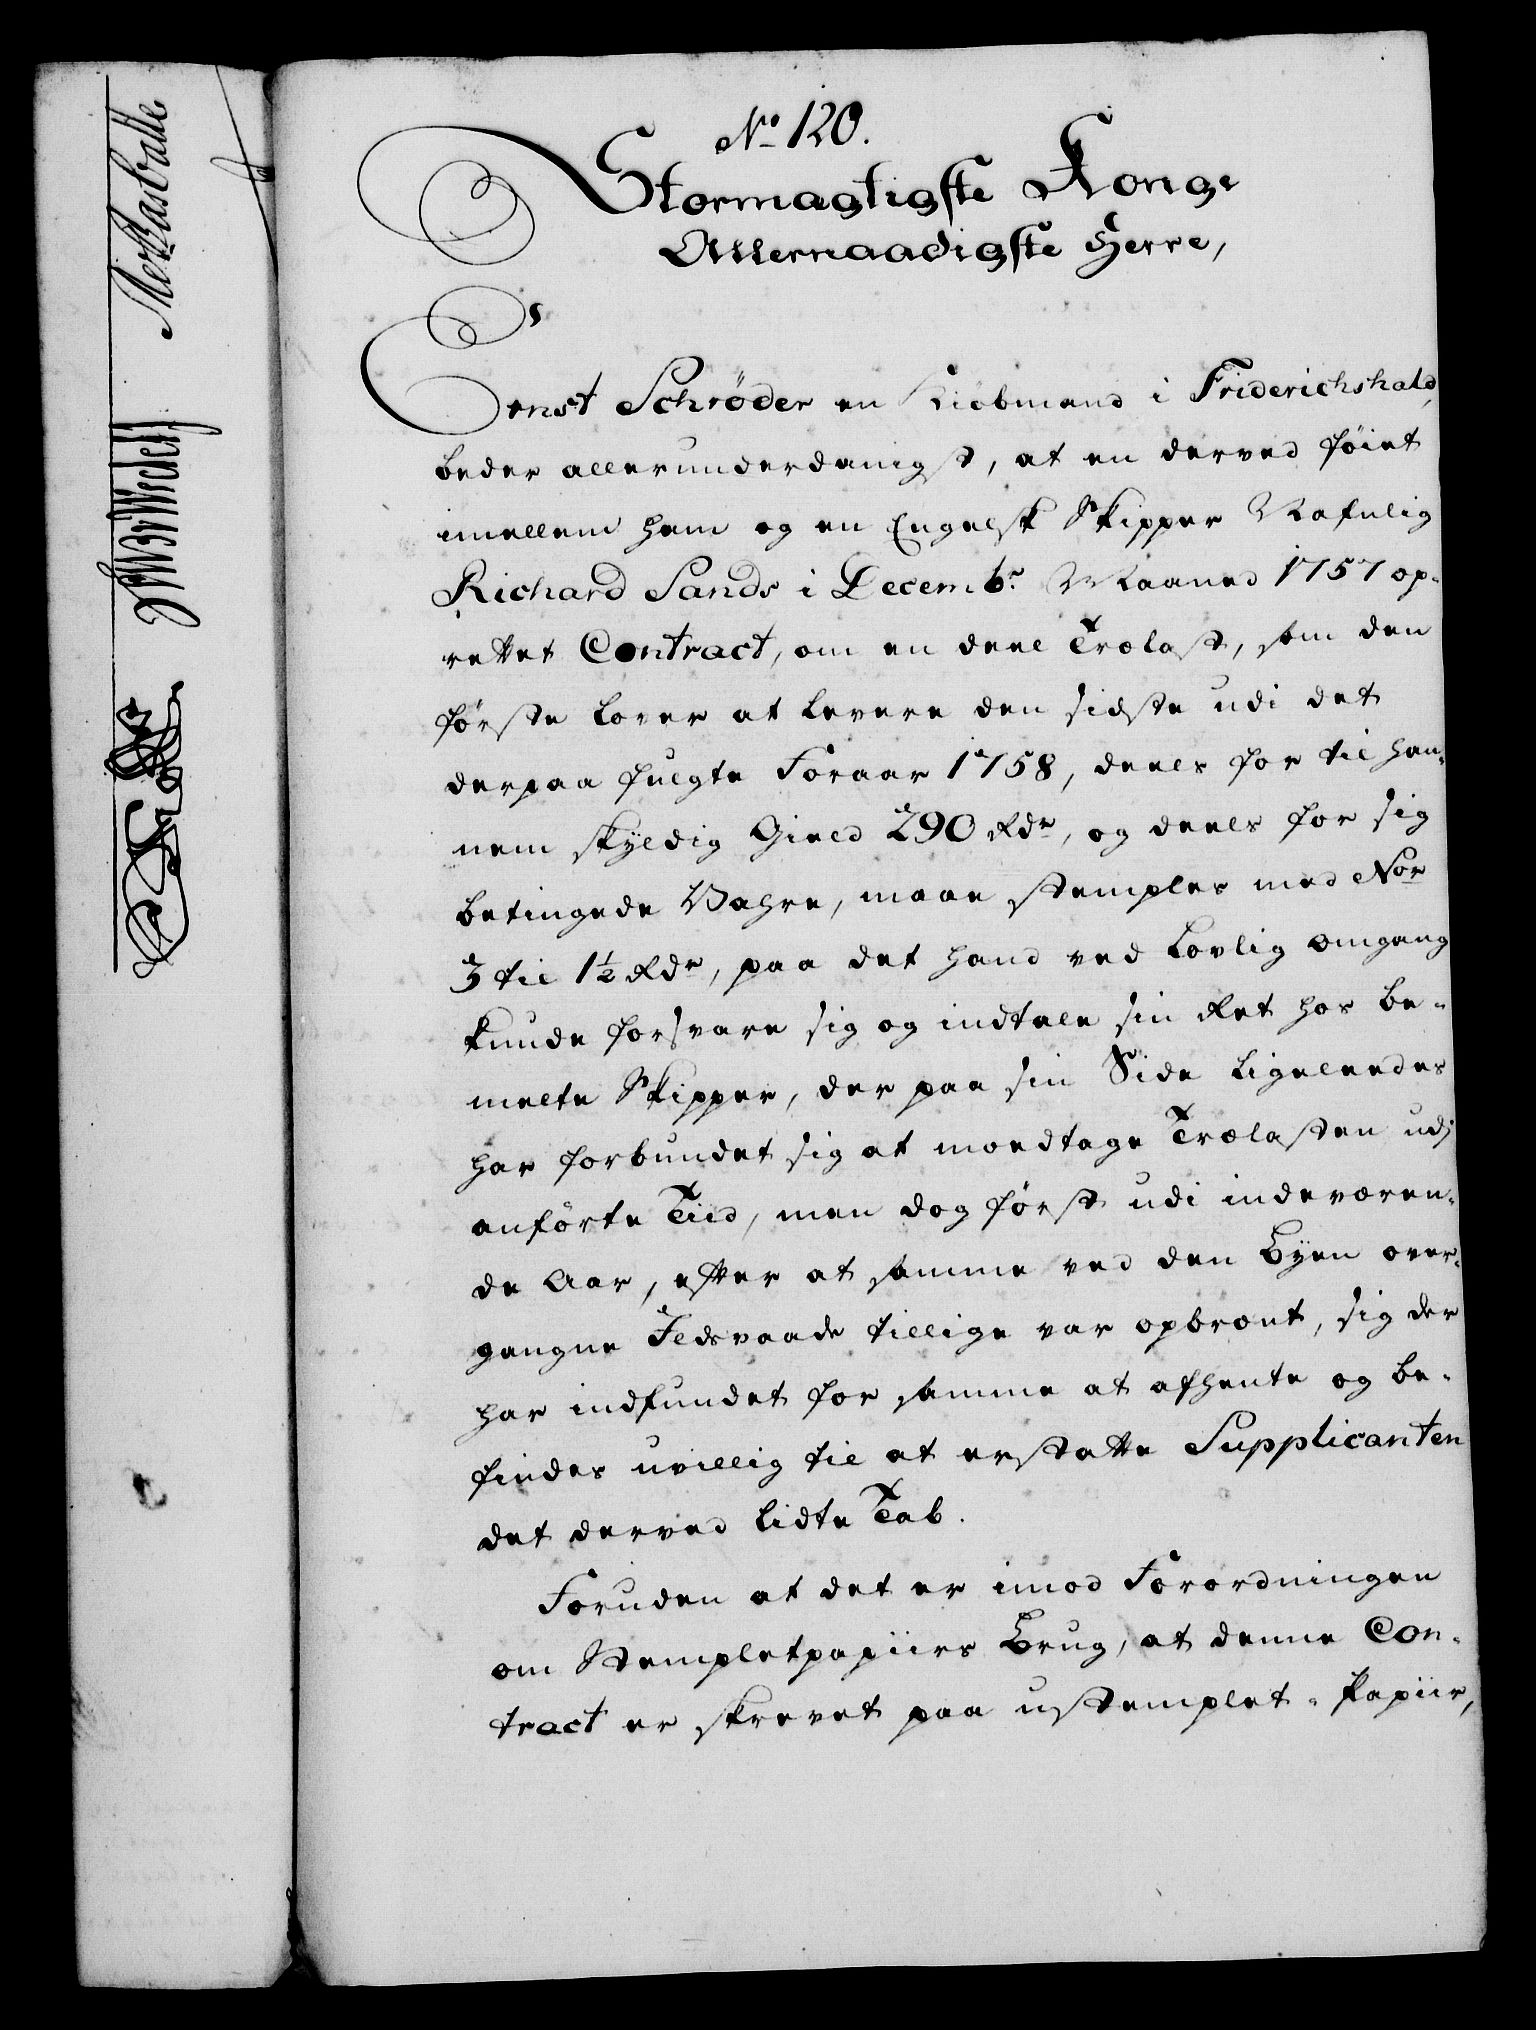 No 120.
Stormægtigste Konge
Allernaadigste Herre,
Ernst Schrøder en Kiöbmand i Friderichshald,
beder allerunderdanigst, at en derved föiet
imellem ham og en Engelsk Skipper Nafnlig
Richard Sands i Decembr Maaned 1757 op-
rettet Contract, om en deel Trælast, som den
förste lover at levere den sidste udi det
derpaa fulgte Foraar 1758, deels for til han-
nem skyldig Gield 290 Rdr, og deels for sig
betingede Vahre, maae stemples med Nor
3 til 1½ Rdr, paa det hand ved Lovlig omgang
kunde forsvare sig og indtale sin Ret hos be-
melte Skipper, der paa sin Side ligeleedes
har forbundet sig at modtage Trælasten udj
anförte Tiid, men dog först udi indeværen-
de Aar, efter at samme ved den Byen over-
gangne Ildsvaade tillige var opbrænt, sig der
har indfundet for samme at afhente og be-
findes uvillig til at erstatte Supplicanten
det derved lidte Tab.
Foruden at det er imod Forordningen
om Stempletpapiirs Brug, at denne Con-
tract er skrevet paa ustemplet-Papiir,